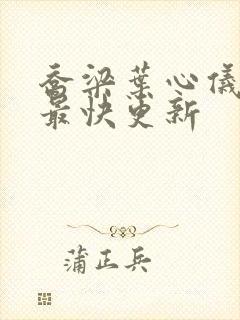 乔梁葉心儀
最快更新
蒲正兵